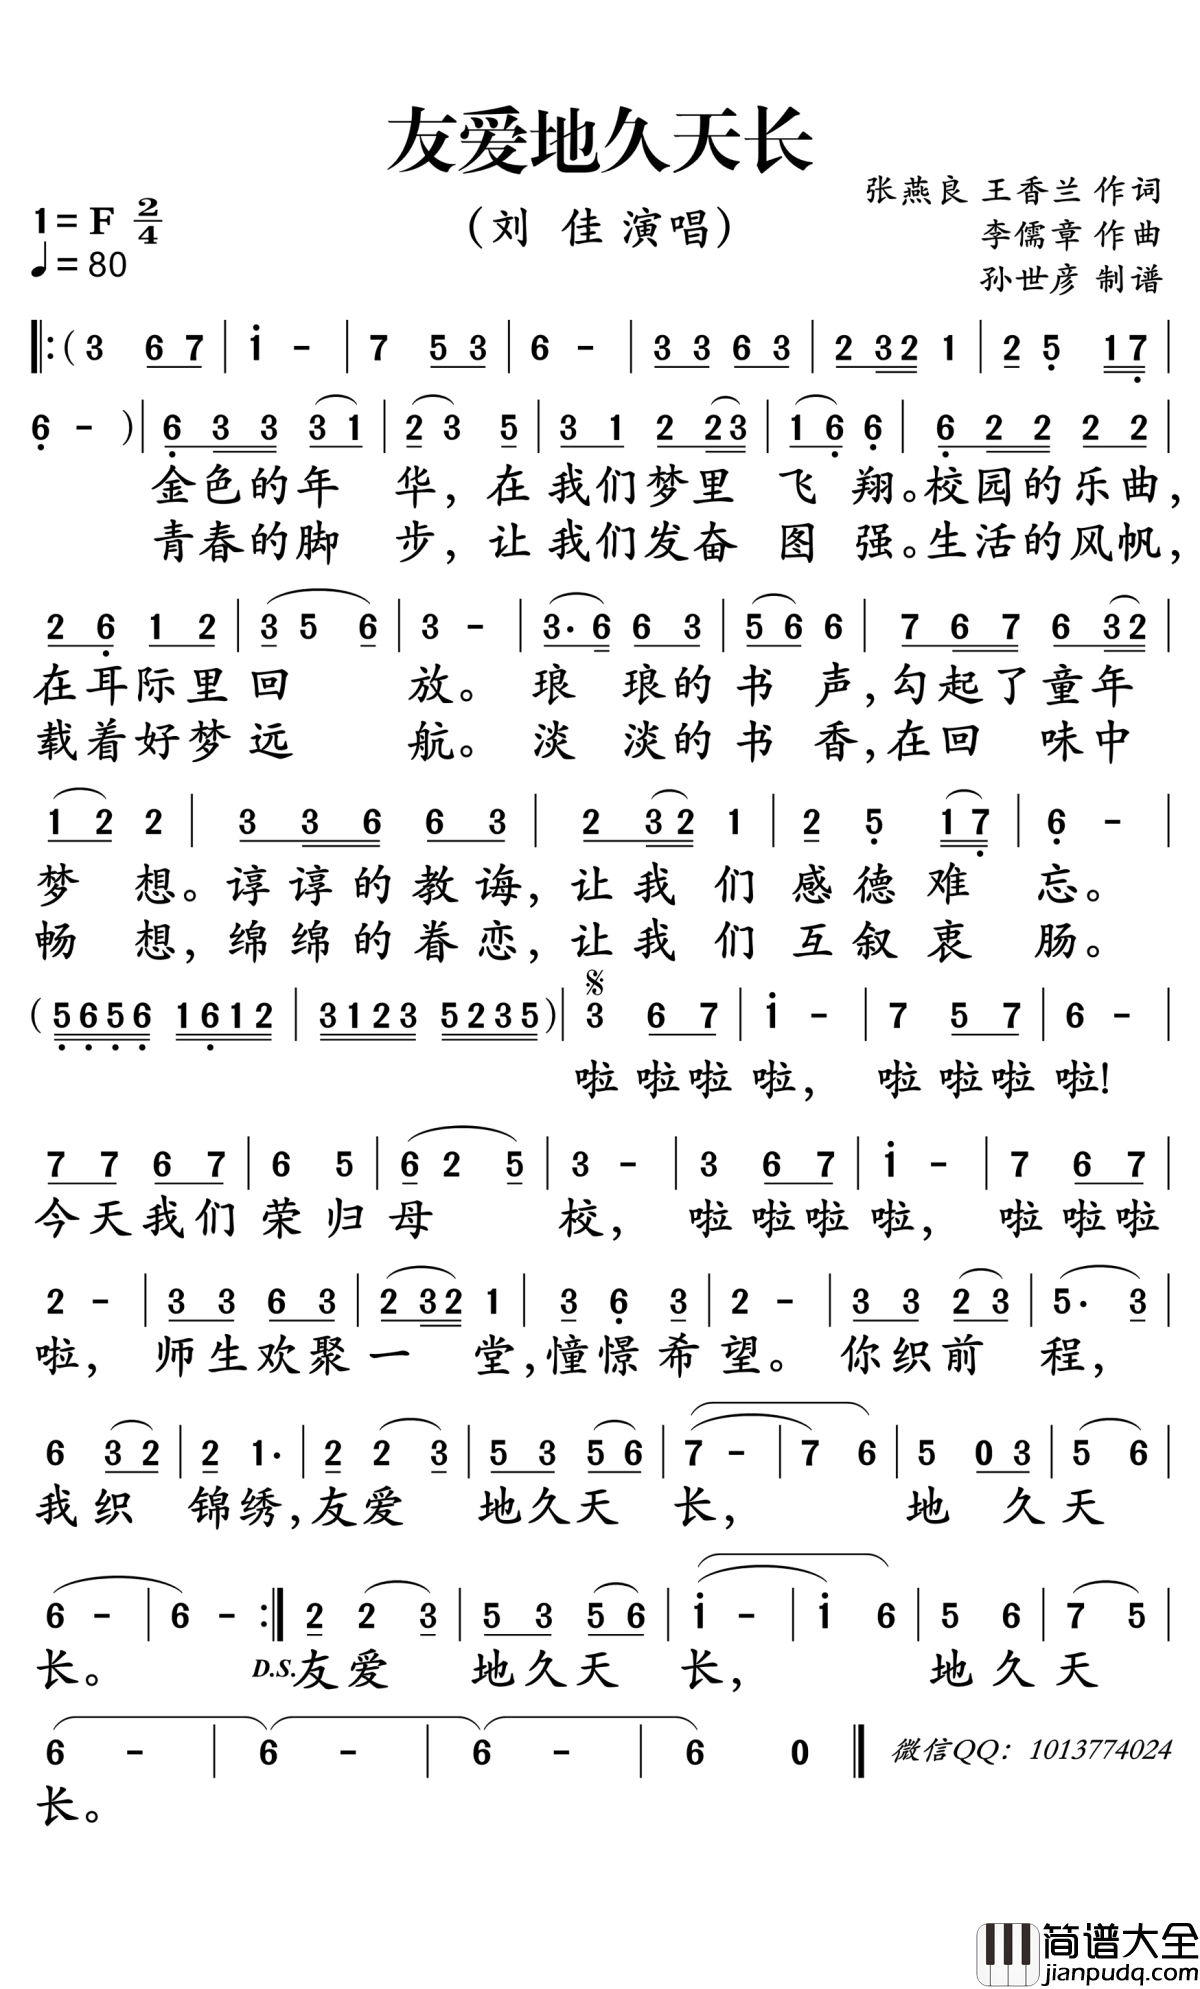 友爱地久天长
张燕良 王香兰 作词
1= F 2/4
（刘 佳 演唱）
李儒章 作曲
♩= 80
孙世彦 制谱
‖:( 3 6 7 | i - | 7 5 3 | 6 - | 3 3 6 3 | 2 3 2 1 | 2 5 1 7 |
6 - )| 6 3 3 3 1 | 2 3 5 | 3 1 2 2 3 | 1 6 6 | 6 2 2 2 2 |
金色的年 华，在我们梦里 飞 翔。校园的乐曲，
青春的脚 步，让我们发奋 图 强。生活的风帆，
2 6 1 2 | 3 5 6 | 3 - | 3· 6 6 3 | 5 6 6 | 7 6 7 6 3 2 |
在耳际里回 放。 琅 琅的书 声，勾起了童年
载着好梦远 航。 淡 淡的书 香，在回 味中
1 2 2 | 3 3 6 6 3 | 2 3 2 1 | 2 5 1 7 | 6 - |
梦 想。谆谆的教诲，让我 们 感德难 忘。
畅 想，绵绵的眷恋，让我 们 互叙衷 肠。
( 5 6 5 6 1 6 1 2 | 3 1 2 3 5 2 3 5 )| 3 6 7 | i - | 7 5 7 | 6 - |
啦 啦啦 啦， 啦 啦啦 啦!
7 7 6 7 | 6 5 | 6 2 5 | 3 - | 3 6 7 | i - | 7 6 7 |
今天我们 荣归母 校， 啦 啦啦 啦， 啦 啦啦
2 - | 3 3 6 3 | 2 3 2 1 | 3 6 3 | 2 - | 3 3 2 3 | 5· 3 |
啦， 师生欢聚一 堂，憧憬希 望。 你织前 程，
6 3 2 | 2 1· | 2 2 3 | 5 3 5 6 | 7 - | 7 6 | 5 0 3 | 5 6 |
我织 锦绣，友爱 地久天 长， 地 久天
6 - | 6 - :‖ 2 2 3 | 5 3 5 6 | i - | i 6 | 5 6 | 7 5 |
长。 D.S. 友爱 地久天 长， 地久天
6 - | 6 - | 6 - | 6 0 ‖ 微信QQ：1013774024
长。
简谱大全
jianpudq.com